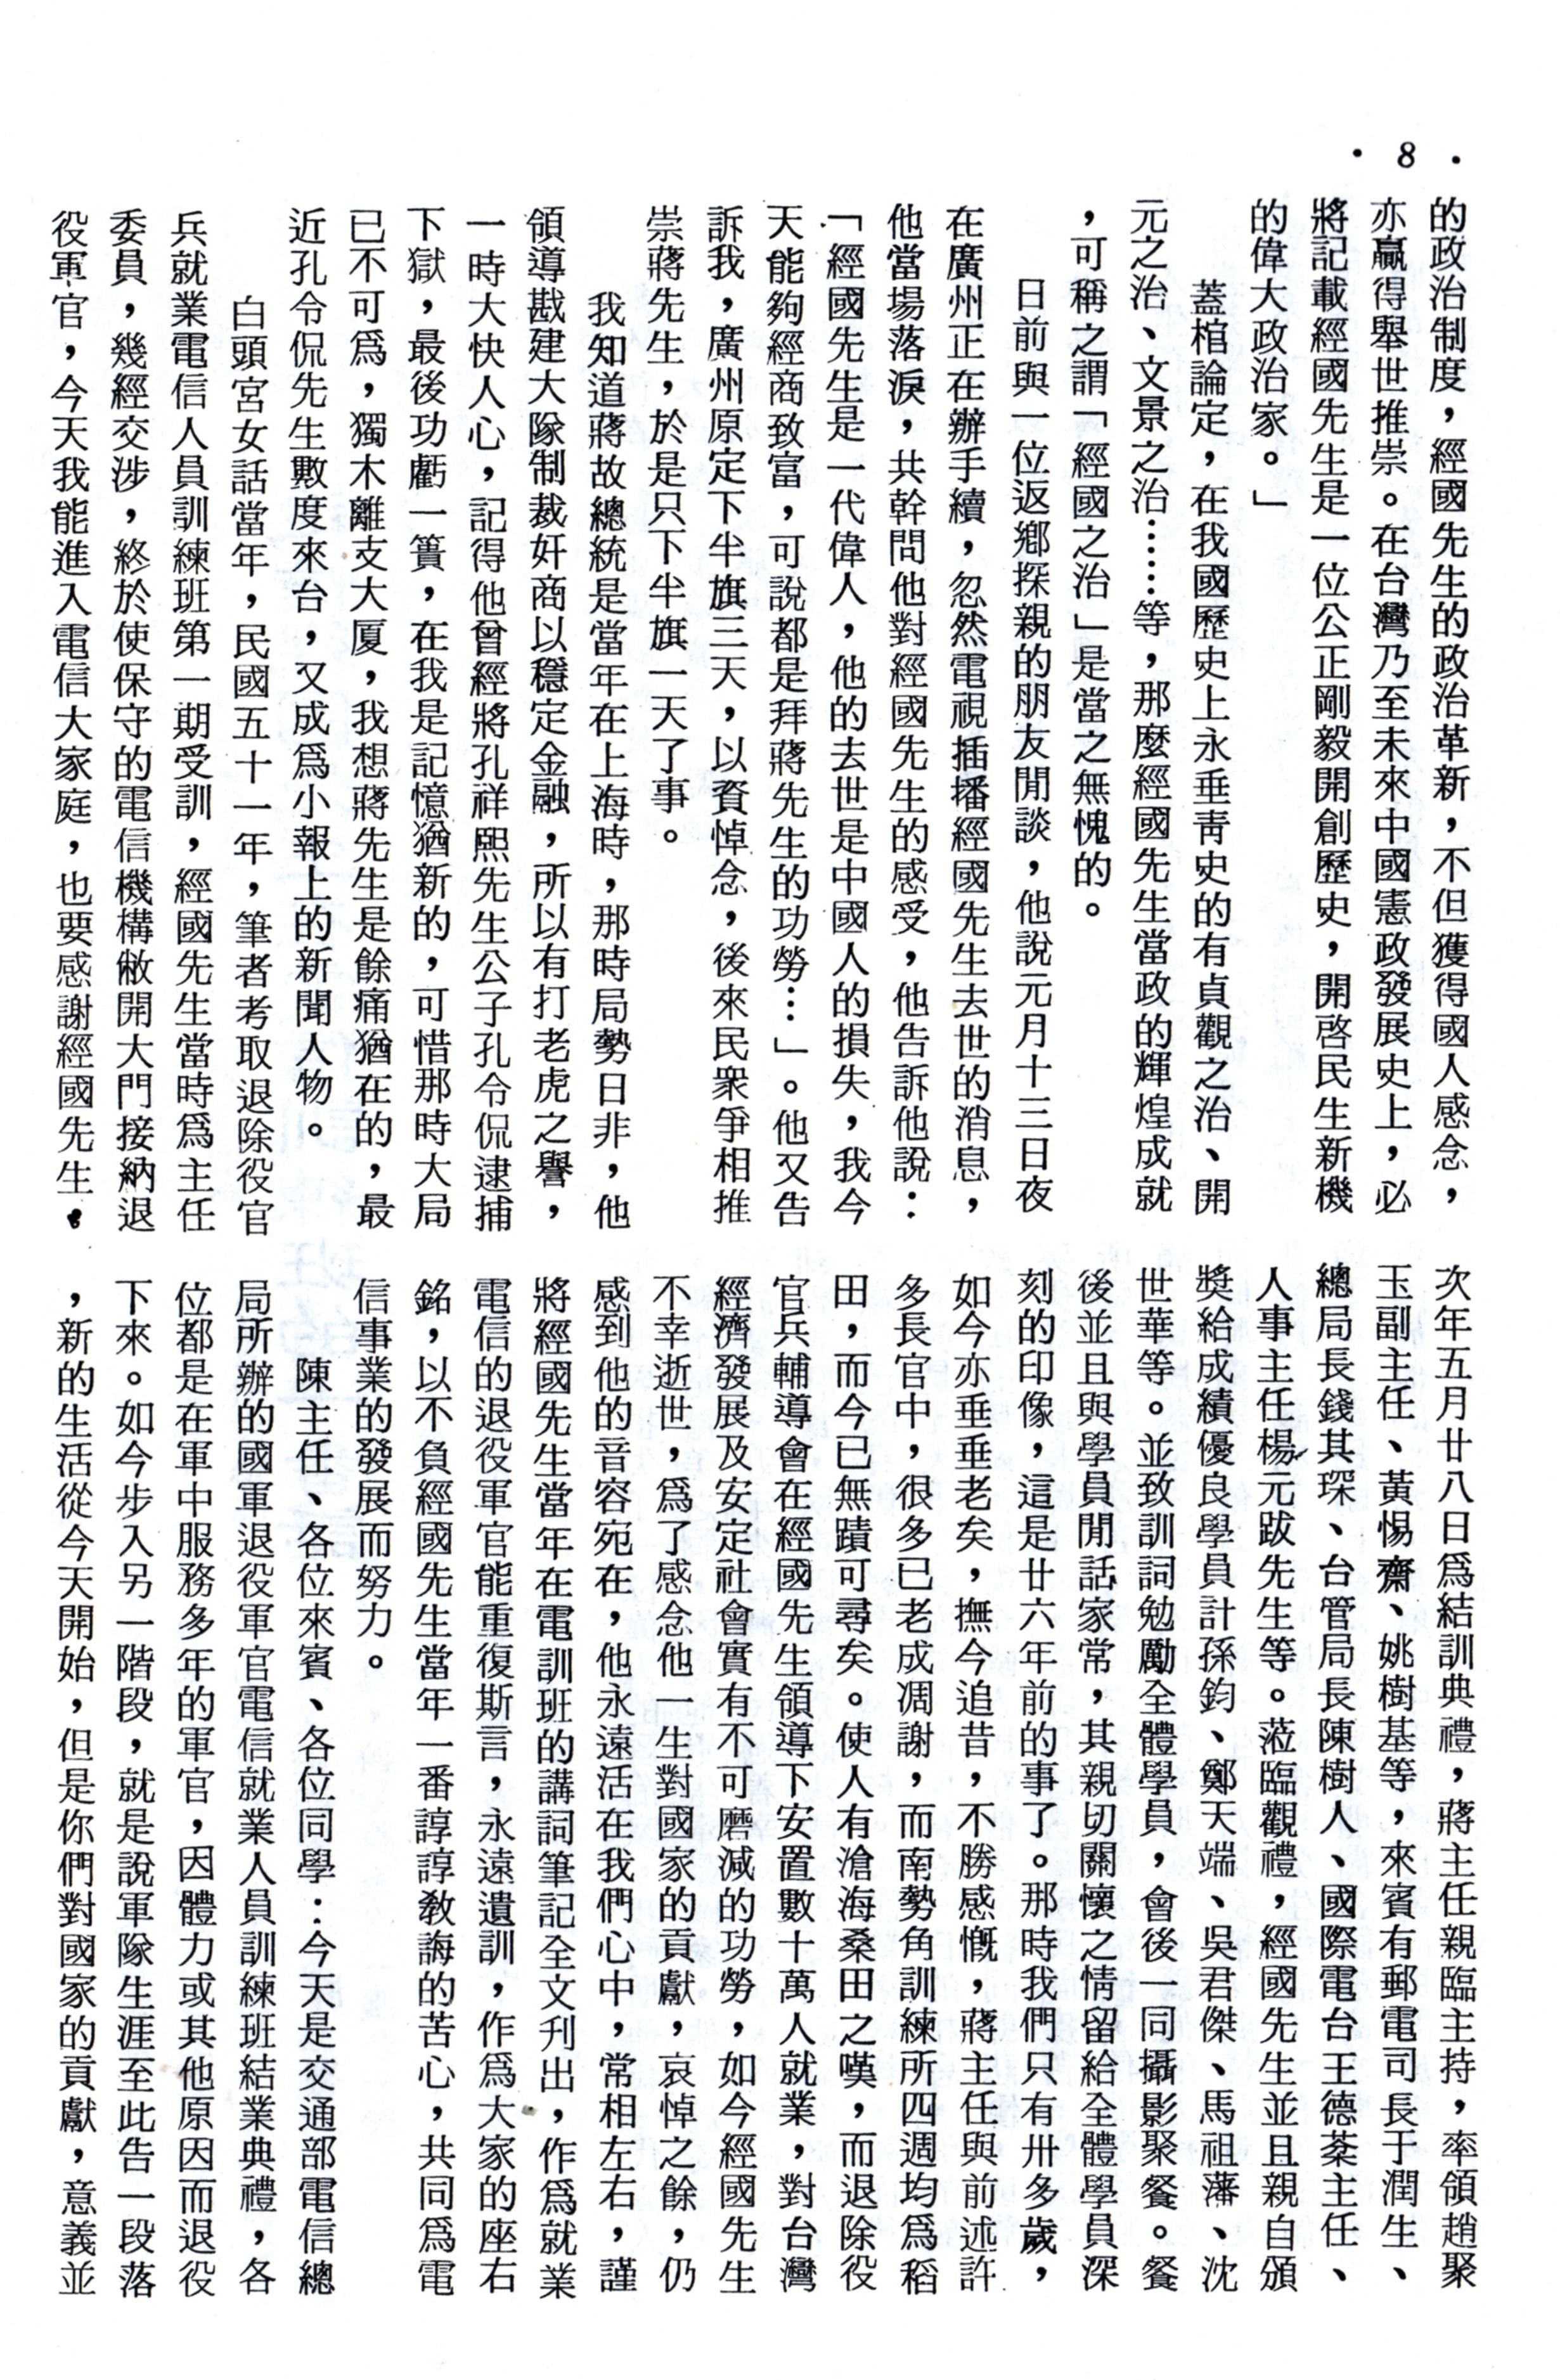 • 8 •
的政治制度，經國先生的政治革新，不但獲得國人感念，
亦贏得舉世推崇。在台灣乃至未來中國憲政發展史上，必
將記載經國先生是一位公正剛毅開創歷史，開啓民生新機
的偉大政治家。」
蓋棺論定，在我國歷史上永垂靑史的有貞觀之治、開
元之治、文景之治……等，那麼經國先生當政的輝煌成就
，可稱之謂「經國之治」是當之無愧的。
日前與一位返鄉探親的朋友閒談，他說元月十三日夜
在廣州正在辦手續，忽然電視插播經國先生去世的消息，
他當場落淚，共幹問他對經國先生的感受，他告訴他說：
「經國先生是一代偉人，他的去世是中國人的損失，我今
天能夠經商致富，可說都是拜蔣先生的功勞…」。他又告
訴我，廣州原定下半旗三天，以資悼念，後來民衆爭相推
崇蔣先生，於是只下半旗一天了事。
我知道蔣故總統是當年在上海時，那時局勢日非，他
領導戡建大隊制裁奸商以穩定金融，所以有打老虎之譽，
一時大快人心，記得他曾經將孔祥熙先生公子孔令侃逮捕
下獄，最後功虧一簣，在我是記憶猶新的，可惜那時大局
已不可爲，獨木離支大厦，我想蔣先生是餘痛猶在的，最
近孔令侃先生數度來台，又成爲小報上的新聞人物。
白頭宮女話當年，民國五十一年，筆者考取退除役官
兵就業電信人員訓練班第一期受訓，經國先生當時爲主任
委員，幾經交涉，終於使保守的電信機構敝開大門接納退
役軍官，今天我能進入電信大家庭，也要感謝經國先生。
次年五月廿八日爲結訓典禮，蔣主任親臨主持，率領趙聚
玉副主任、黃惕齋、姚樹基等，來賓有郵電司長于潤生、
總局長錢其琛、台管局長陳樹人、國際電台王德棻主任、
人事主任楊元跋先生等。蒞臨觀禮，經國先生並且親自頒
獎給成績優良學員計孫鈞、鄭天端、吳君傑、馬祖藩、沈
世華等。並致訓詞勉勵全體學員，會後一同攝影聚餐。餐
後並且與學員閒話家常，其親切關懷之情留給全體學員深
刻的印像，這是廿六年前的事了。那時我們只有卅多歲，
如今亦垂垂老矣，撫今追昔，不勝感慨，蔣主任與前述許
多長官中，很多已老成凋謝，而南勢角訓練所四週均爲稻
田，而今已無蹟可尋矣。使人有滄海桑田之嘆，而退除役
官兵輔導會在經國先生領導下安置數十萬人就業，對台灣
經濟發展及安定社會實有不可磨減的功勞，如今經國先生
不幸逝世，爲了感念他一生對國家的貢獻，哀悼之餘，仍
感到他的音容宛在，他永遠活在我們心中，常相左右，謹
將經國先生當年在電訓班的講詞筆記全文刋出，作爲就業
電信的退役軍官能重復斯言，永遠遺訓，作爲大家的座右
銘，以不負經國先生當年一番諄諄敎誨的苦心，共同爲電
信事業的發展而努力。
陳主任、各位來賓、各位同學：今天是交通部電信總
局所辦的國軍退役軍官電信就業人員訓練班結業典禮，各
位都是在軍中服務多年的軍官，因體力或其他原因而退役
下來。如今步入另一階段，就是說軍隊生涯至此告一段落
，新的生活從今天開始，但是你們對國家的貢獻，意義並